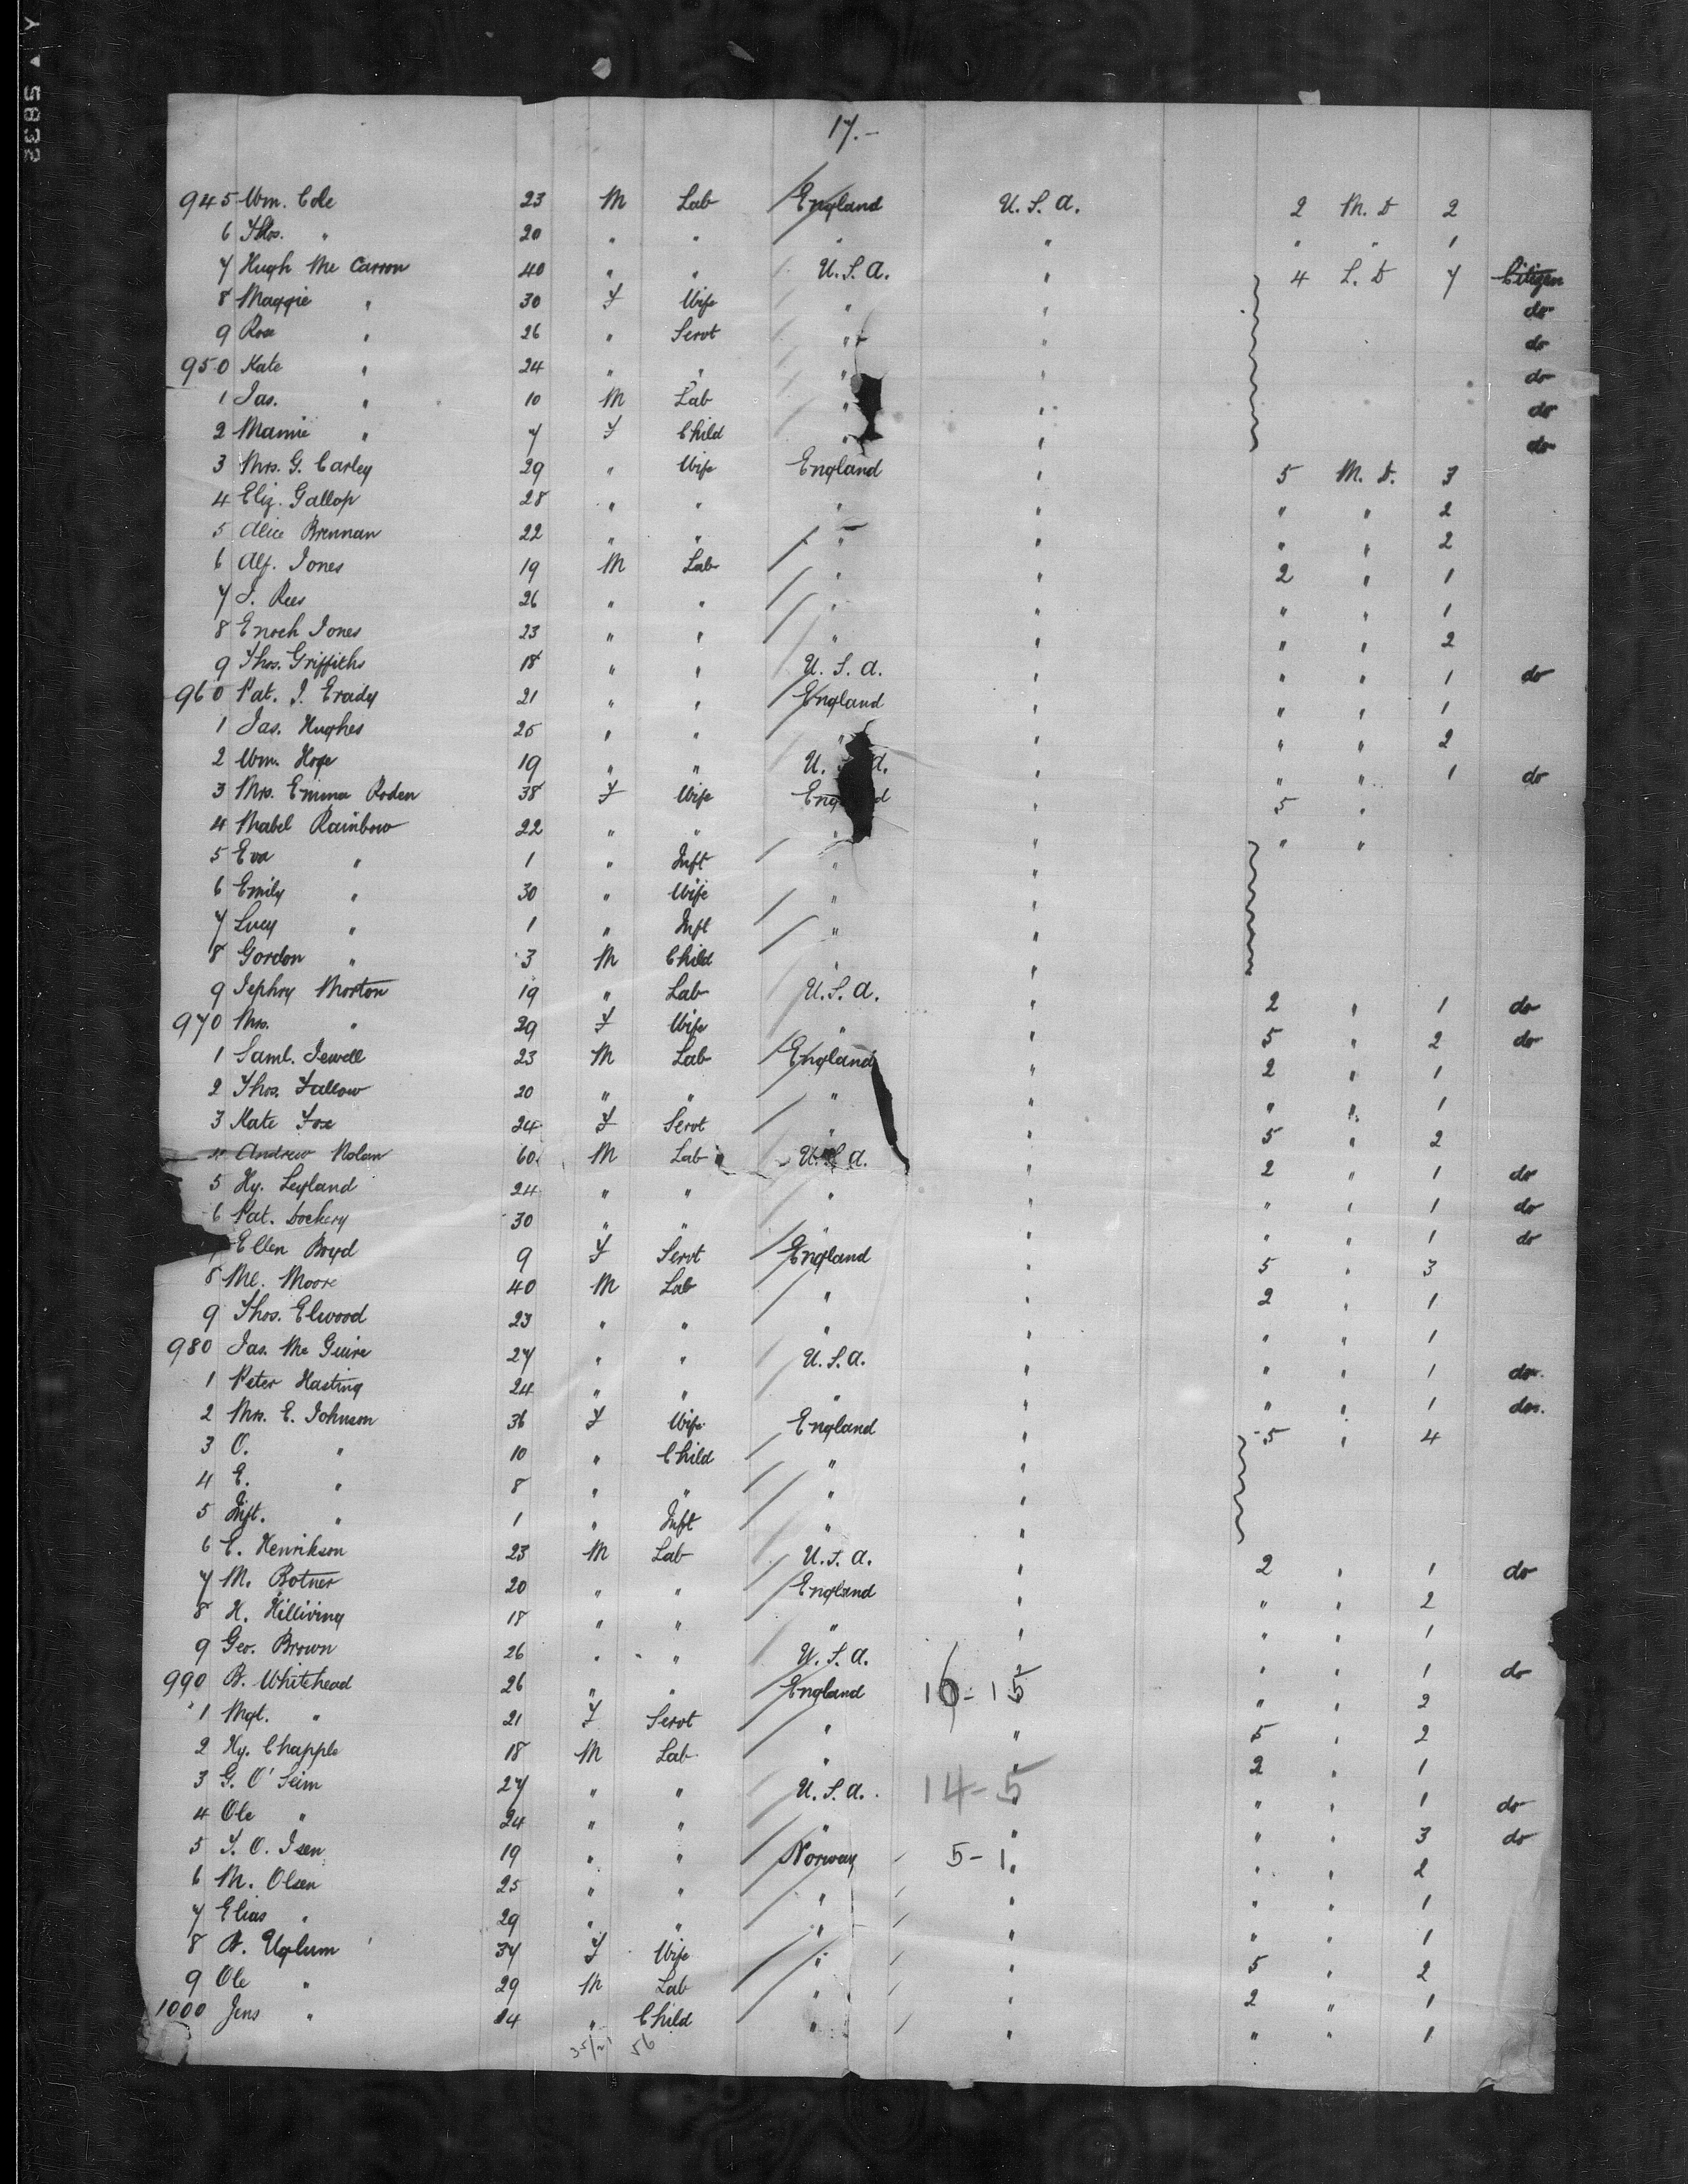 Y ▲ 5832
17.-
945 Wm. Cole 23 M Lab England U.S.A. 2 M.D 2
6 Thos. " 20 " " " " " " 1
7 Hugh Mc Carron 40 " " U.S.A. " 4 L.D 7 Citizen
8 Maggie " 30 F Wife " " do
9 Rose " 26 " Servt " " do
950 Kate " 24 " " " " do
1 Jas. " 10 M Lab " " do
2 Mamie " 7 F Child " " do
3 Mrs. G. Carley 29 " Wife England " 5 M.D. 3
4 Eliz. Gallop 28 " " " " " " 2
5 Alice Brennan 22 " " " " " " 2
6 Alf. Jones 19 M Lab " " 2 " 1
7 J. Rees 26 " " " " " " 1
8 Enoch Jones 23 " " " " " " 2
9 Thos. Griffiths 18 " " U.S.A. " " " 1 do
960 Pat. J. Grady 21 " " England " " " 1
1 Jas. Hughes 25 " " " " " " 2
2 Wm. Hope 19 " " U. A. " " " 1 do
3 Mrs. Emma Roden 38 F Wife Eng d " 5 "
4 Mabel Rainbow 22 " " " " " "
5 Eva " 1 " Inft " "
6 Emily " 30 " Wife " "
7 Lucy " 1 " Inft " "
8 Gordon " 3 M Child " "
9 Jephry Morton 19 " Lab U.S.A. " 2 " 1 do
970 Mrs. " 29 F Wife " " 5 " 2 do
1 Saml. Jewell 23 M Lab England " 2 " 1
2 Thos. Fallow 20 " " " " " " 1
3 Kate Fox 24 F Servt " " 5 " 2
4 Andrew Nolan 60 M Lab U.S.A. " 2 " 1 do
5 Hy. Leyland 24 " " " " " " 1 do
6 Pat. Dockery 30 " " " " " " 1 do
7 Ellen Boyd 9 F Servt England " 5 " 3
8 Ml. Moore 40 M Lab " " 2 " 1
9 Thos. Elwood 23 " " " " " " 1
980 Jas. Mc Guire 27 " " U.S.A. " " " 1 do
1 Peter Hasting 24 " " " " " " 1 do
2 Mrs. E. Johnson 36 F Wife England " 5 " 4
3 O. " 10 " Child " "
4 E. " 8 " " " "
5 Inft. " 1 " Inft " "
6 E. Henrikson 23 M Lab U.S.A. " 2 " 1 do
7 M. Botner 20 " " England " " " 2
8 H. Hilliving 18 " " " " " " 1
9 Geo. Brown 26 " " U.S.A. " " " 1 do
990 B. Whitehead 26 " " England 16-15 " " 2
1 Mgt. " 21 F Servt " " 5 " 2
2 Hy. Chapple 18 M Lab " " 2 " 1
3 G. O' Seim 27 " " U.S.A. 14-5 " " " 1 do
4 Ole " 24 " " " " " " 3 do
5 T. O. Isen 19 " " Norway 5-1 " " " 2
6 M. Olsen 25 " " " " " " 1
7 Elias " 29 " " " " " " 1
8 B. Uglum 37 F Wife " " 5 " 2
9 Ole " 29 M Lab " " 2 " 1
1000 Jens " 14 " Child " " " " 1
35/21 56